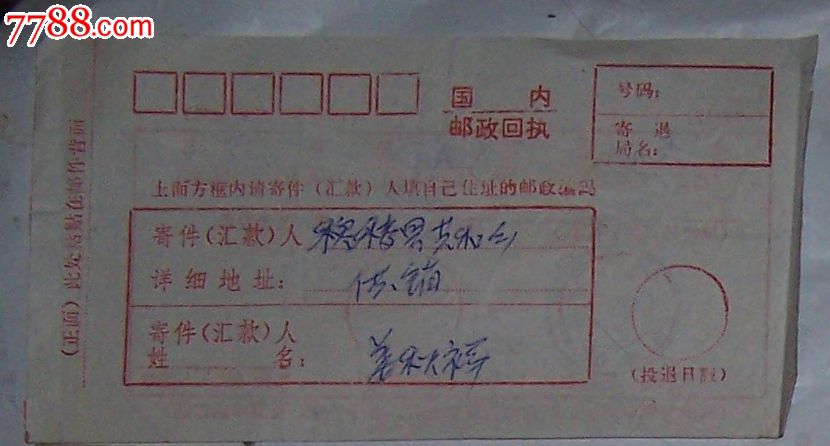 7788.com
国 内
邮政回执
号码：
寄 退
局名：
上面方框内请寄件（汇款）人填自己住址的邮政编码
寄件（汇款）人
详细地址： 供销
寄件（汇款）人
姓 名：
（投退日戳）
（正面）此处粘贴在邮件背面